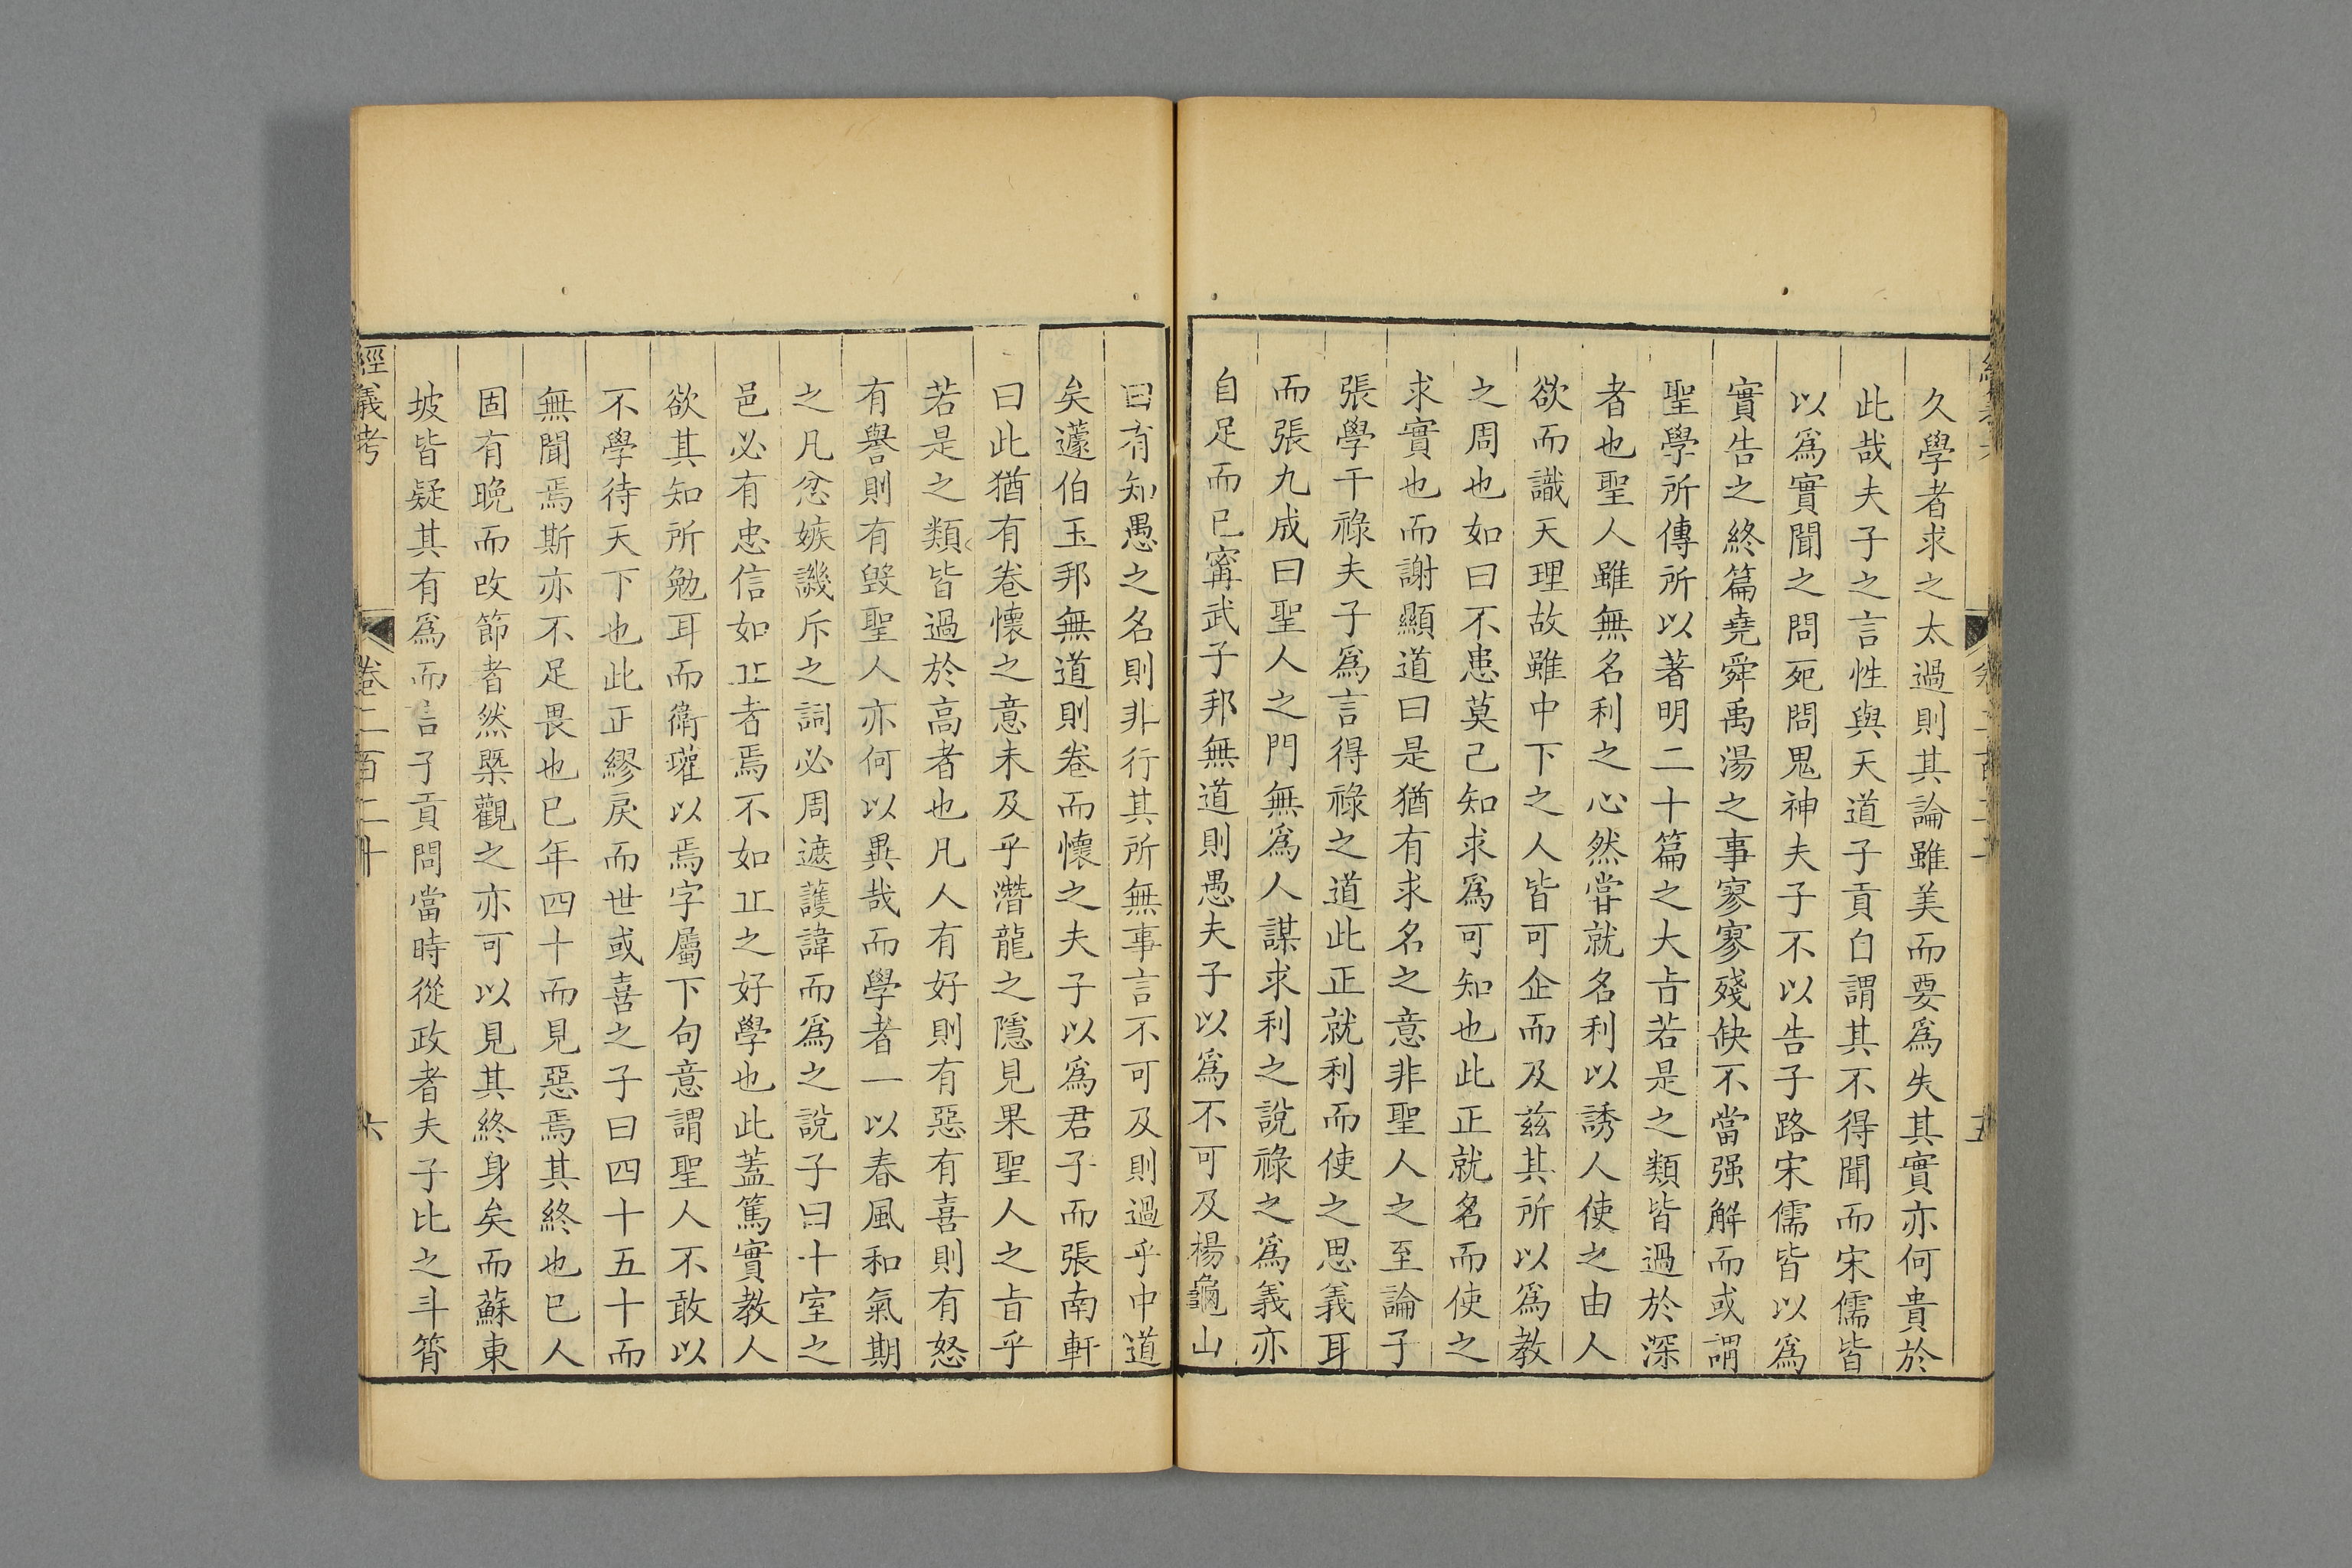 久學者求之太過則其論雖美而要爲失其實亦何貴於
此哉夫子之言性與天道子貢白謂其不得聞而宋儒皆
以爲實聞之問死問鬼神夫子不以告子路宋儒皆以爲
實告之終篇堯舜禹湯之事寥寥殘缺不當强解而或謂
聖學所傳所以著明二十篇之大㫖若是之類皆過於深
者也聖人雖無名利之心然甞就名利以誘人使之由人
欲而識天理故雖中下之人皆可企而及兹其所以爲教
之周也如曰不患莫己知求爲可知也此正就名而使之
求實也而謝顯道曰是猶有求名之意非聖人之至論子
張學干祿夫子爲言得祿之道此正就利而使之思義耳
而張九成曰聖人之門無爲人謀求利之說祿之爲義亦
自足而已甯武子邦無道則愚夫子以爲不可及楊龜山
曰有知愚之名則非行其所無事言不可及則過乎中道
矣蘧伯玉邦無道則卷而懷之夫子以爲君子而張南軒
曰此猶有卷懷之意未及乎潛龍之隱見果聖人之㫖乎
若是之類皆過於高者也凡人有好則有惡有喜則有怒
有譽則有毀聖人亦何以異哉而學者一以春風和氣期
之凡忿嫉譏斥之詞必周遮護諱而爲之說子曰十室之
邑必有忠信如丘者焉不如丘之好學也此蓋篤實教人
欲其知所勉耳而衞瓘以焉字屬下句意謂聖人不敢以
不學待天下也此正繆戾而世或喜之子曰四十五十而
無聞焉斯亦不足畏也已年四十而見惡焉其終也已人
固有晚而改節者然槩觀之亦可以見其終身矣而蘇東
坡皆疑其有爲而言子貢問當時從政者夫子比之斗筲
經義考
卷二百二十
六